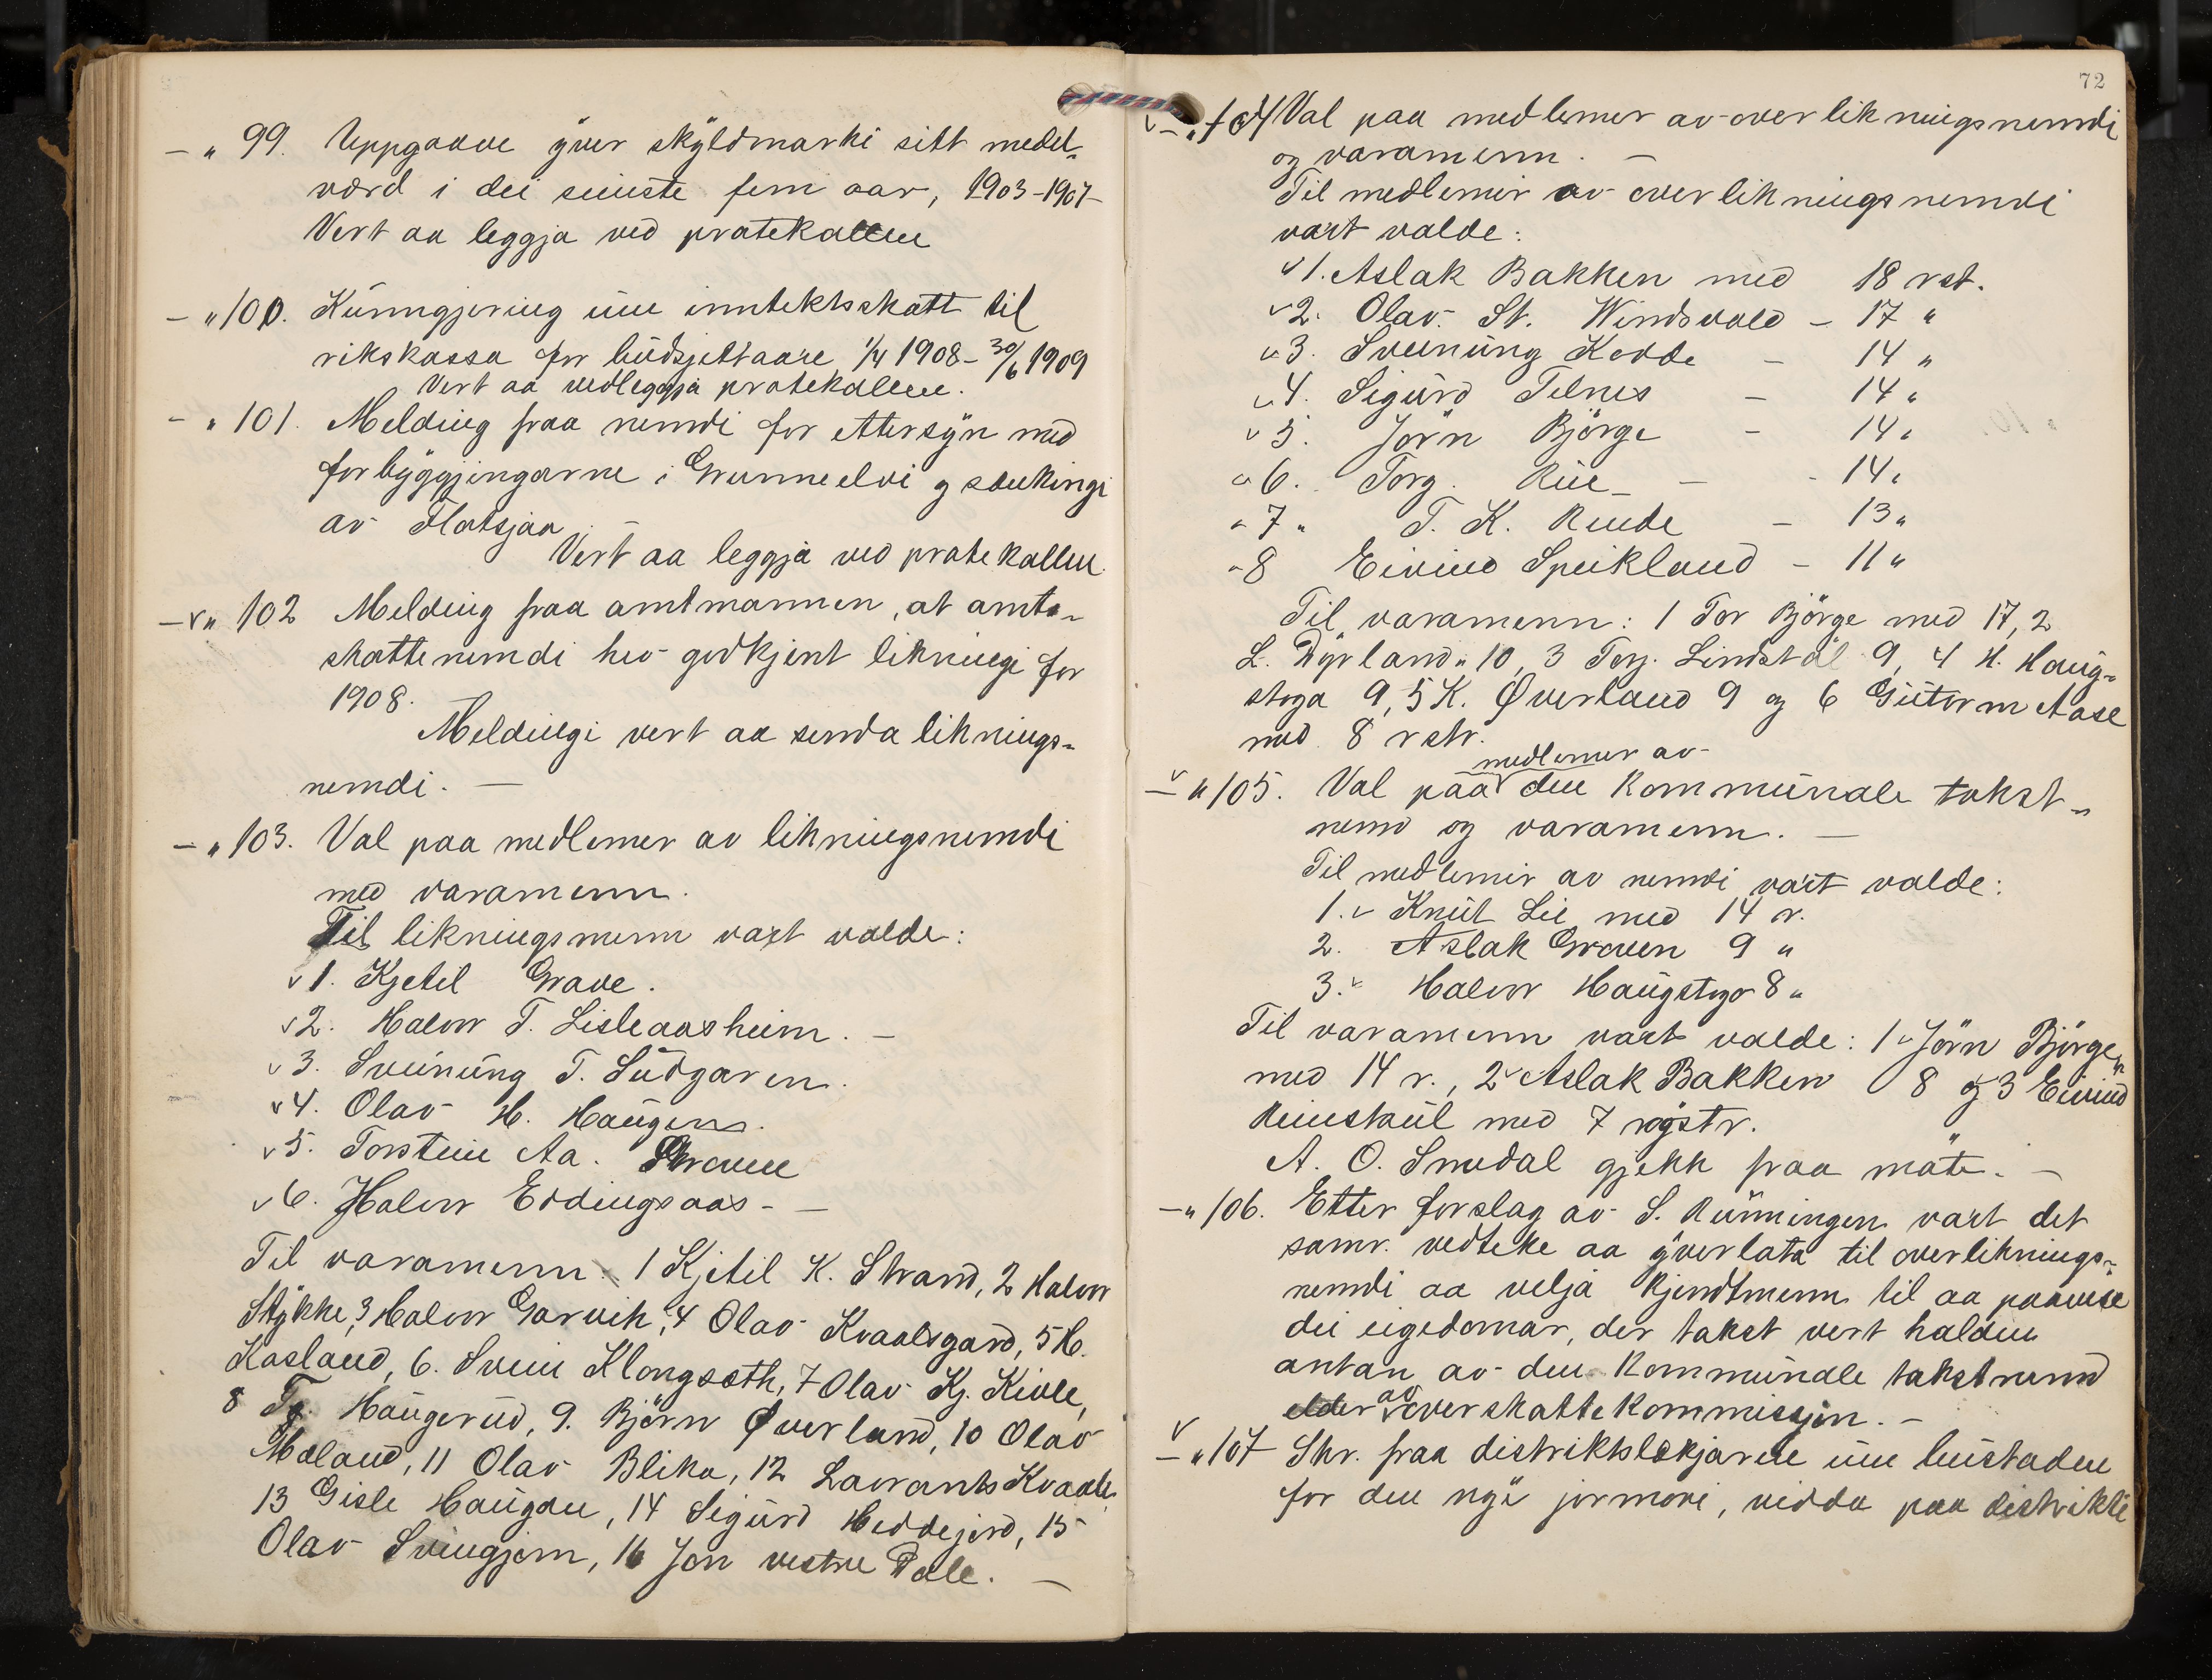 - " 99. Uppgaave yver skyldmarki sitt medel-
værd i dei seinste fem aar, 1903-1907-
Vert aa leggja ved protekallen
- " 100. Kunngjering um inntektsskatt til
rikskassa for budsjettaaret 1/4 1908 - 30/6 1909
Vert aa vedleggja protekallen.
- " 101. Melding fraa nemdi for ettersyn med
forbyggjingarne i Grunneelvi og sænkingi
av Flatsjaa
Vert aa leggja ved protekallen.
- v " 102 Melding fraa amtmannen, at amts-
skattenemdi hev godkjent likningi for
1908.
Meldingi vert aa senda liknings-
nemdi. -
- " 103. Val paa medlemer av likningsnemdi
med varamenn.
Til likningsmenn vart valde:
v 1. Kjetil Grave.
v 2. Halvor T. Lisleaasheim. -
v 3. Sveinung T. Sudgaren.
v 4. Olav H. Haugen.
v 5. Torstein Aa. Graven
v 6. Halvor Erdingsaas - -
Til varamenn: 1 Kjetil K. Strand, 2 Halvor
Stykke, 3 Halvor Garvik, 4 Olav Kvaalsgard, 5 H.
Kasland, 6. Svein Klongseth, 7 Olav Kj. Kivle,
8 Haugerud, 9. Bjørn Øverland, 10 Olav
Mæland, 11 Olav Blika, 12 Lavrants Kvaale,
13 Gisle Haugan, 14 Sigurd Heddejord, 15
Olav Svingjom, 16 Jon vestre Dale. -
72
v - " 104 Val paa medlemer av overlikningsnemdi
og varamenn. -
Til medlemir av overlikningsnemdi
vart valde:
v 1. Aslak Bakken med 18 rst.
v 2. Olav St. Windsvold - 17 "
v 3. Sveinung Kovde - 14 "
v 4. Sigurd Telnes - 14 "
v 5. Jørn Bjørge - 14 "
v 6. Torg. Rue - - 14 "
v 7 " T. K. Runde - 13 "
v 8 Eivind Speikland - 11 "
Til varamenn: 1 Tor Bjørge med 17, 2
L. Dyrland " 10, 3 Torj. Lindstøl 9, 4 H. Haug-
stoga 9, 5 K. Øverland 9 og 6 Gutorm Aase
med 8 rstr.
medlemer av
v - " 105. Val paa den kommunale takst-
nemd og varamenn. -
Til medlemir av nemdi vart valde:
1. v Knut Lie med 14 r.
2. Aslak Graven 9 "
3. v Halvor Haugstoga 8 "
Til varamenn vart valde: 1 v Jørn Bjørge
med 14 r., 2 v Aslak Bakken 8 og 3 Eivind
Reinskul med 7 røystr.
A. O. Smedal gjekk fraa møte. -
- " 106. Etter forslag av S. Rünningen vart det
samr. vedteke aa yverlata til overliknings-
nemdi aa velja kjendtmenn til aa paavise
dei eigedomar, der takst vert halden
antan av den kommunale takstnemd
elder av overskattekommisjon. -
v - " 107 Skr. fraa distriktslækjaren um bustaden
for den nye jormori, vidda paa distrikti